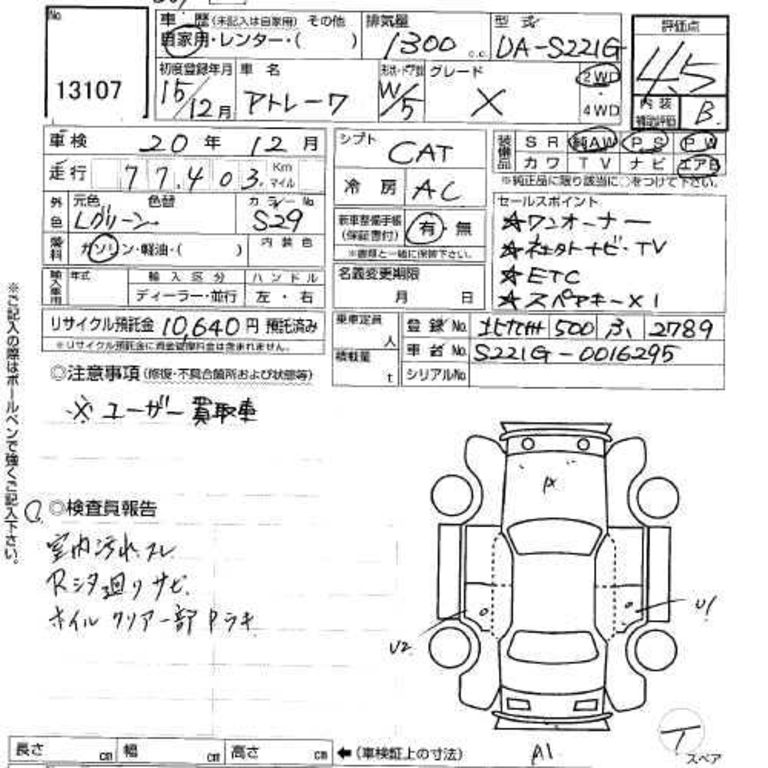 No
13107
車 歴 (未記入は自家用) その他
自家用・レンター・( )
排気量
1300 c.c.
型 式
UA-S221G
評価点
4.5
内装補助評価
B
初度登録年月
15/12月
車 名
アトレーワ
形状・ドア数
W/5
グレード
X
2WD
・
4WD
車検 20年 12月
走行 77,403 Km マイル
シフト
CAT
冷 房
AC
装備品
SR 純AW PS PW
カワ TV ナビ エアB
※純正品に限り該当に○をつけて下さい。
外色
元色 色替
Lグリーン
カラー No
S29
燃料
ガソリン・軽油・( )
内装色
新車整備手帳
(保証書付)
有・無
※書類と一緒に保管下さい。
セールスポイント
★ワンオーナー
★社外ナビ・TV
★ETC
★スペアキー×1
輸入車用
年式
輸入区分
ディーラー・並行
ハンドル
左・右
名義変更期限
月 日
リサイクル預託金 10,640円 預託済み
※リサイクル預託金に資金管理料金は含まれません。
乗車定員
人
積載量
t
登録No. 北九州 500 ふ 2789
車台No. S221G-0016295
シリアルNo.
◎注意事項(修復・不具合箇所および状態等)
※ ユーザー買取車
※ご記入の際はボールペンで強くご記入下さい。
◎検査員報告
室内汚れスレ
Rシタ廻りサビ
ホイルクリアー部ハラキ
U2
U1
A1
スペア
長さ cm 幅 cm 高さ cm ←(車検証上の寸法)